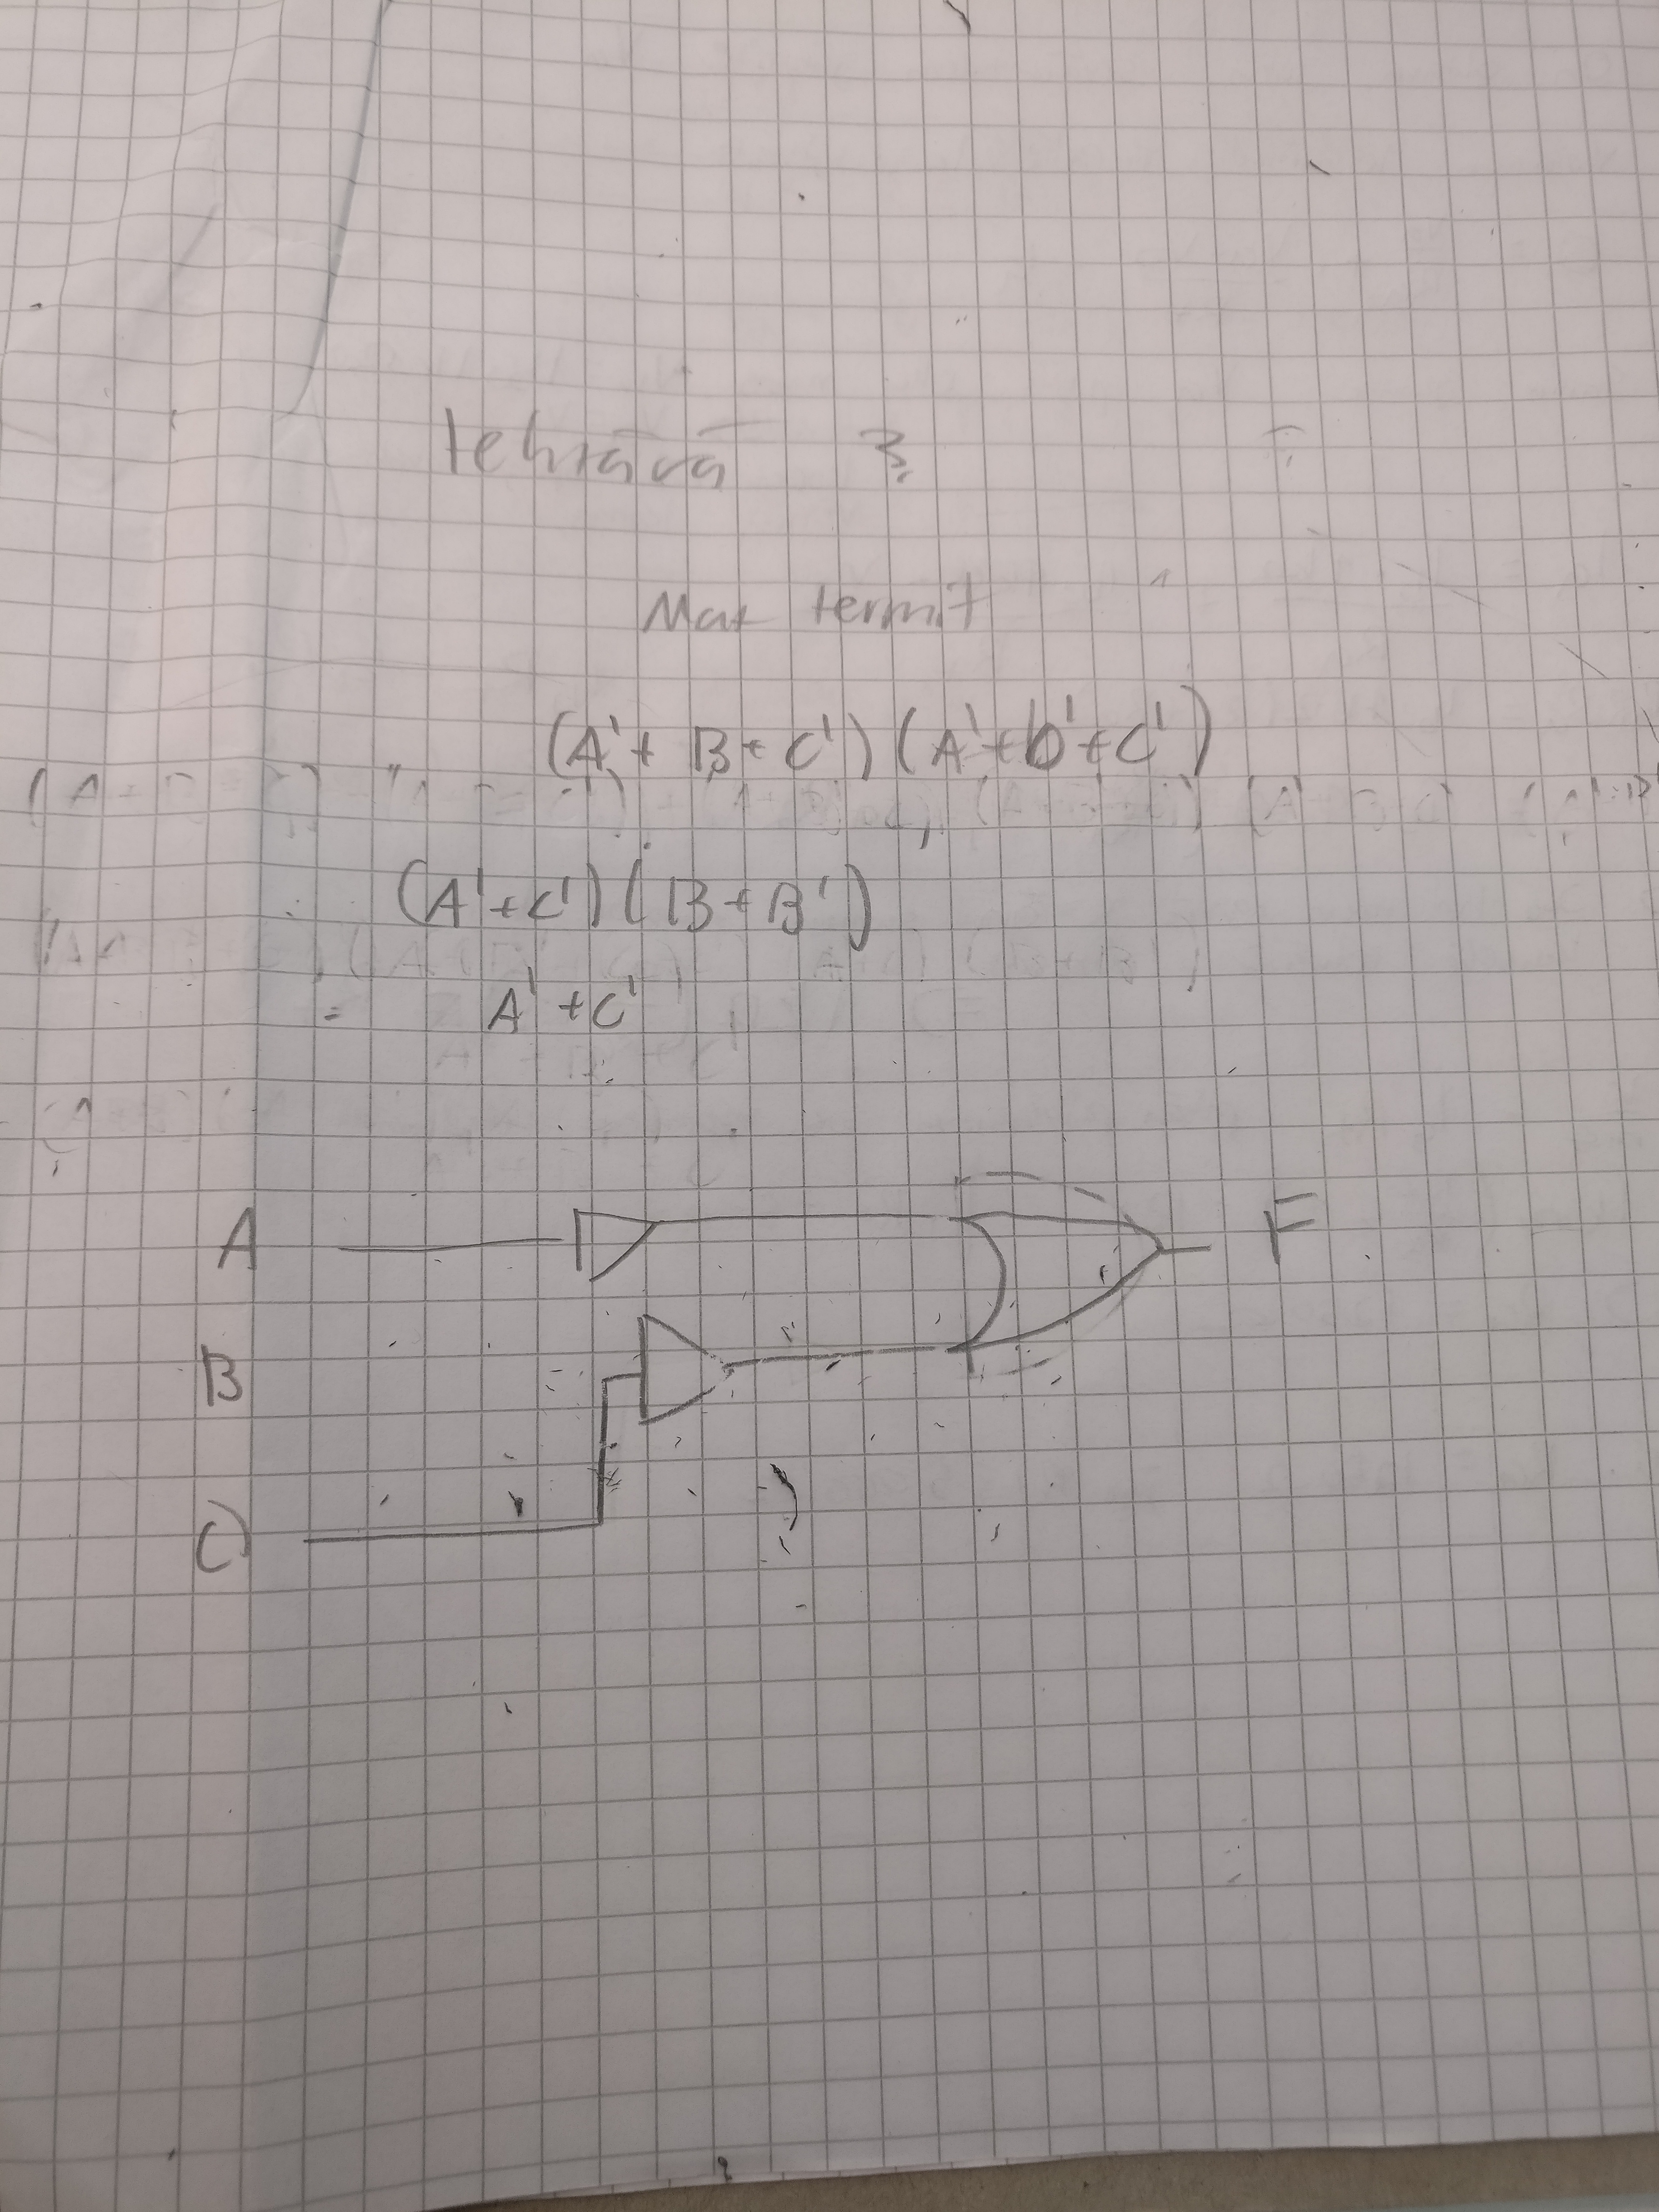 tehtävä 3.
Max termit
(A'+ B + C') (A'+b'+C')
(A'+C') (B+B')
= A' + C'
A
F
B
C